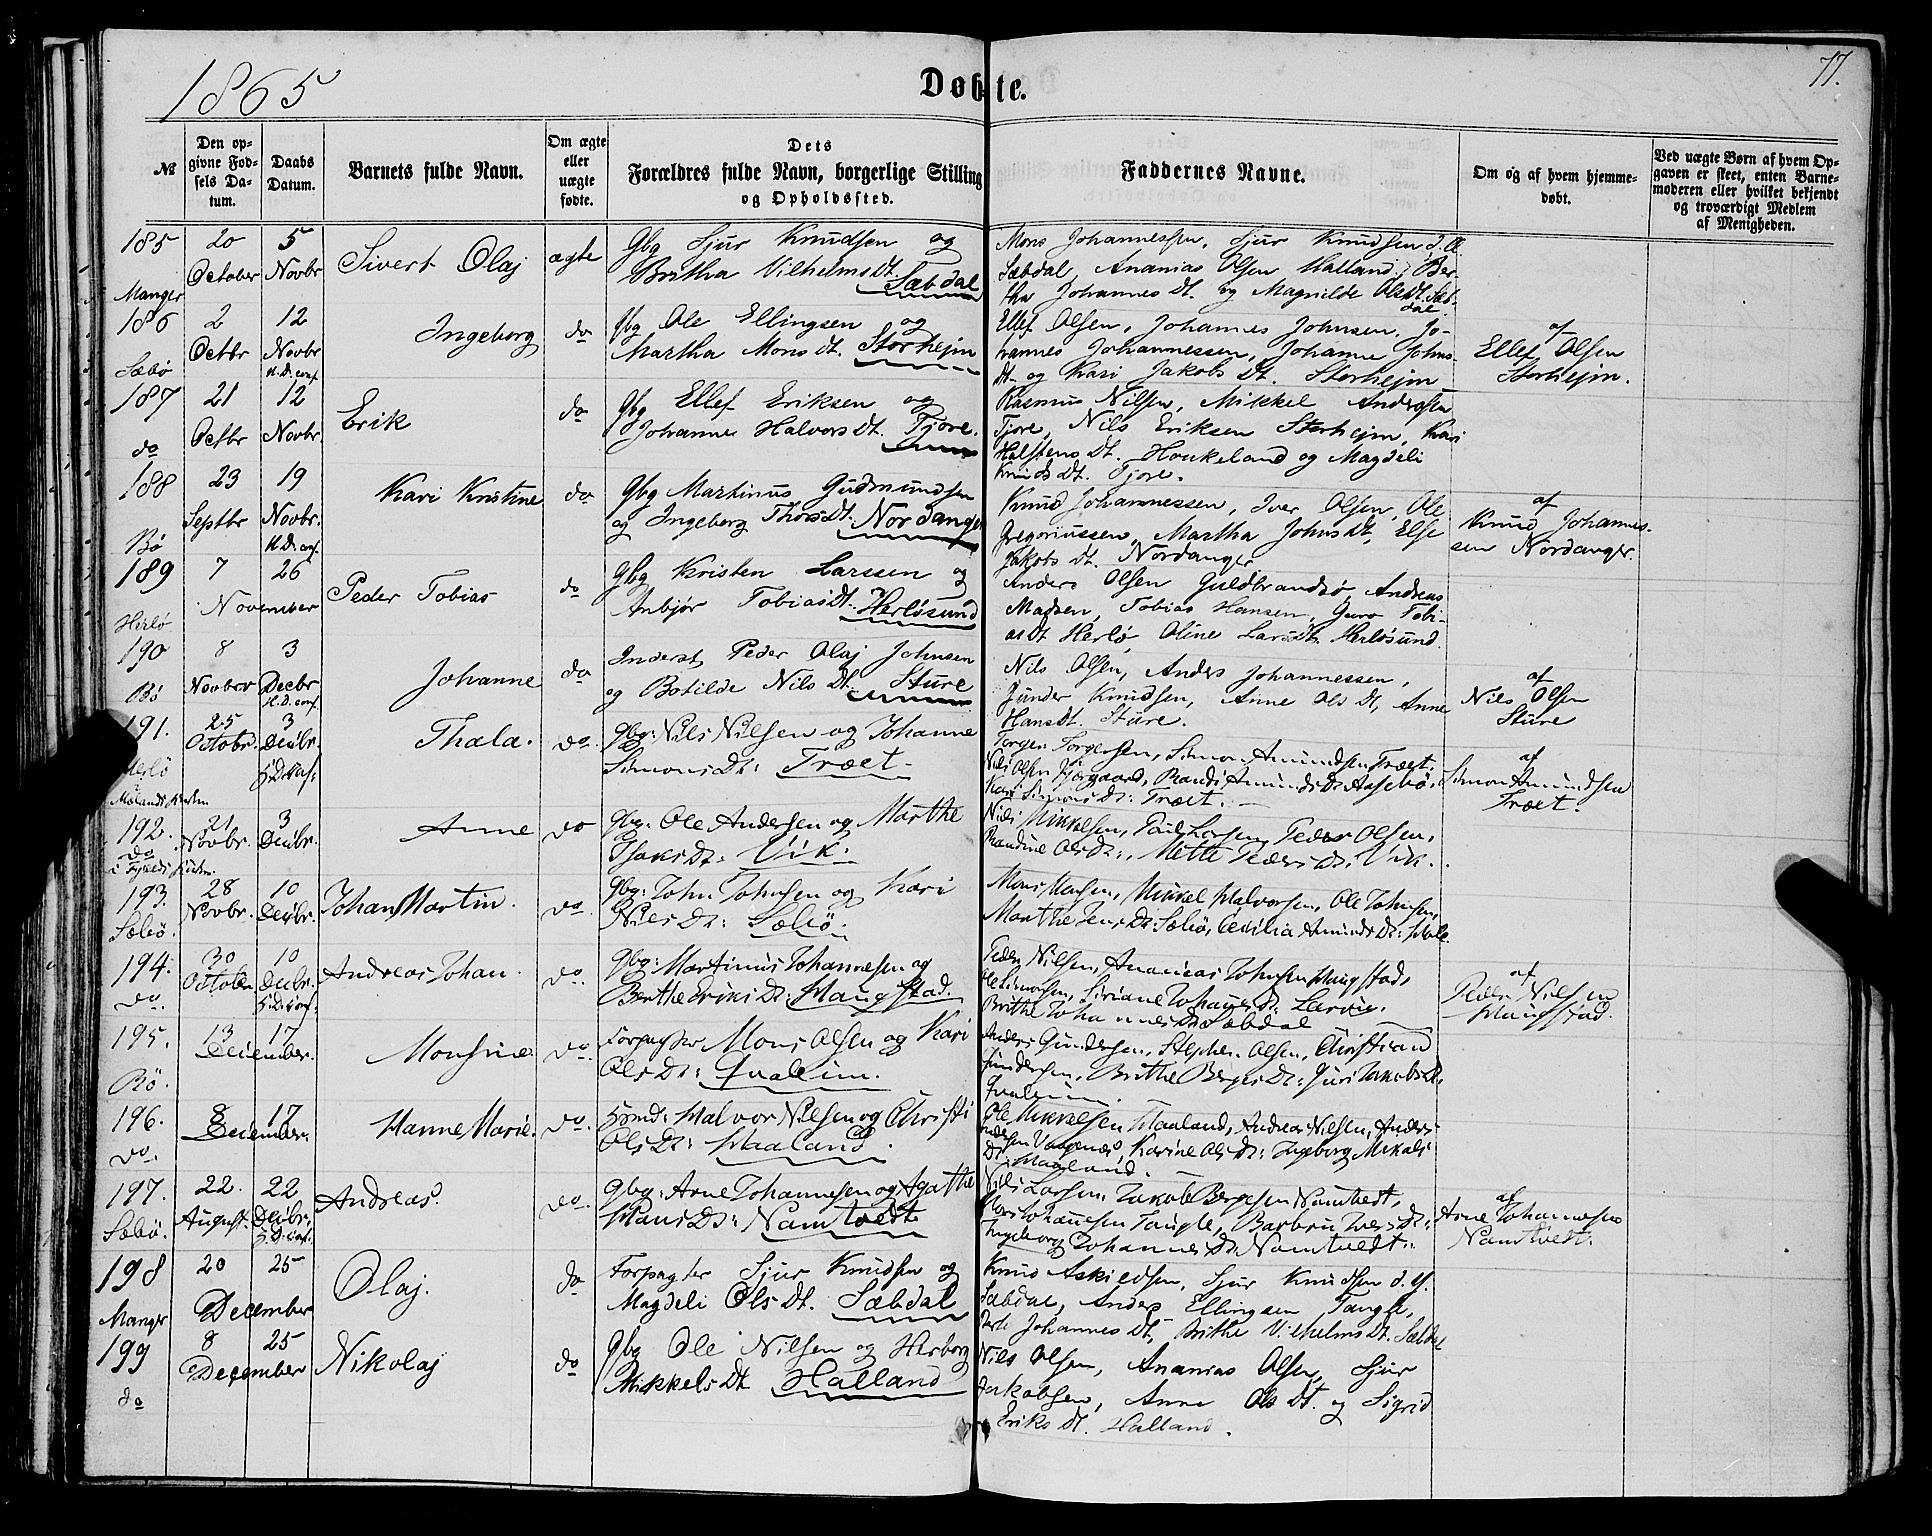 1865
Døbte.
77.
№
Den opgivne Fødsels Datum.
Daabs Datum.
Barnets fulde Navn.
Om ægte eller uægte fødte.
Dets Forældres fulde Navn, borgerlige Stilling og Opholdssted.
Faddernes Navne.
Om og af hvem hjemmedøbt.
Ved uægte Børn af hvem Opgaven er skeet, enten Barnemoderen eller hvilket bekjendt og troværdigt Medlem af Menigheden.
185 20 5 Sivert Olaj ægte Gbg Sjur Knudsen og Mons Johannessen, Sjur Knudsen d. Æ
October Novbr Britha Vilhelms Dt. Sæbdal Sæbdal, Ananias Olsen Halland, Ber-
Manger tha Johannes Dt. og Magnilde Ols Dt. Sæb-
dal.
186 2 12 Ingeborg do Gbg Ole Ellingsen og Ellef Olsen, Johannes Johnsen, Jo- af
Octbr Novbr Martha Mons Dt. Storhejm hannes Johannessen, Johanne Johns Ellef Olsen
Sæbø H.D. conf. Dt. og Kari Jakobs Dt. Storhejm Storhejm.
187 21 12 Erik do Gbg Ellef Eriksen og Rasmus Nilsen, Mikkel Andersen
Octbr Novbr. Johanne Halvors Dt. Fjore. Fjore, Nils Eriksen Storhejm, Kari
do Halstens Dt. Houkeland og Magdeli
Knuds Dt. Fjore.
188 23 19 Kari Kristine do Gbg Martinus Gudmundsen Knud Johannessen, Iver Olsen, Ole af
Septbr Novbr. og Ingeborg Thors Dt. Nordanger Gregoriussen, Martha Johns Dt, Else Knud Johannes-
Bø H.D. conf. Jakobs Dt. Nordanger sen Nordanger.
189 7 26 Peder Tobias do Gbg Kristen Larssen og Anders Olsen Guldbrandsø, Andreas
November Anbjør Tobias Dt. Herløsund Madsen, Tobias Hansen, Guro Tobi-
Herlø as Dt Herlø, Oline Lars Dt. Herløsund
190 8 3 Johanne do Inderst Peder Olaj Johnsen Nils Olsen, Anders Johannessen, af
Bø Novber Decbr og Botilde Nils Dt. Sture Gunder Knudsen, Anne Ols Dt, Anne Nils Olsen
H.D. conf. Hans Dt. Sture. Sture
191. 25 3 Thala. do. gbg: Nils Nilsen og Johanne Torger Torgersen, Simon Amundsen Træet, af
Octobr. Decbr. Simons Dt: Træet Nils Olsen Fjørgaard, Randi Amunds Dt Simon Amundsen
Herlø Kari Simons Dt: Træet. Træet.
192. 21 3 Anne do gbg: Ole Andersen og Marthe Nils Mikkelsen, Poul Larsen, Peder Olsen,
do Novbr. Decbr. Isaks Dt: Vik. Randine Ols Dt:, Mette Peders Dt: Vik.
193. 28 10 Johan Martin. do. gbg: John Johnsen og Kari Mons Monsen, Mikkel Halvorsen, Ole Johnsen,
Sæbø. Novbr. Decbr. Nils Dt: Sæbø. Marthe Jens Dt: Sæbø, Cecilia Amunds Dt:
194. 30 10 Andreas Johan. do. gbg: Martinus Johannesen og Peder Nilsen, Ananias Johnsen Haugstad, af
do. October Decbr. Berthe Eriks Dt: Haugstad. Ole Simonsen, Siriane Johannes Dt: Peder Nilsen
Brithe Johannes Dt Sæbdal Haugstad.
195. 13 17 Monsine do. Forpagter Mons Olsen og Kari Anders Gundersen, Stephen Olsen, Christian
December. Ols Dt: Qvaleim. Gundersen, Brithe Berges Dt: Guri Jakobs Dt.
Bø. Qvaleim.
196. 8 17 Hanne Marie. do. Halvor Nilsen og Christi Ole Mikkelsen Haaland, Andreas Nilsen, Anders
December. Ols Dt: Haaland. Andersen Vaagenæs, Karine Ols Dt: Ingeborg Mikals
do. Dt: Haaland.
197. 22. 22 Andreas. do. gbg: Arne Johannesen og Agathe Nils Larsen, Jakob Bergesen Namtvedt, af
Sæbø. August. Decbr. Hans Dt: Namtvedt Johannesen Tangle, Barbru Ivers Dt: Arne Johannesen
Ingeborg Johannes Dt: Namtvedt. Namtvedt.
198 20 25 Olaj. do Forpagter Sjur Knudsen og Knud Askildsen, Sjur Knudsen d. Y.
Manger December Magdeli Ols Dt. Sæbdal Sæbdal, Anders Ellingsen Tangle,
Johannes Dt, Brithe Vilhelms Dt. Sæbdal
199 8 25 Nikolaj do Gbg Ole Nilsen og Herborg Nils Olsen, Ananias Olsen, Sjur
December Mikkels Dt Halland Jakobsen, Anna Ols Dt. og Sigrid
do Eriks Dt. Halland.